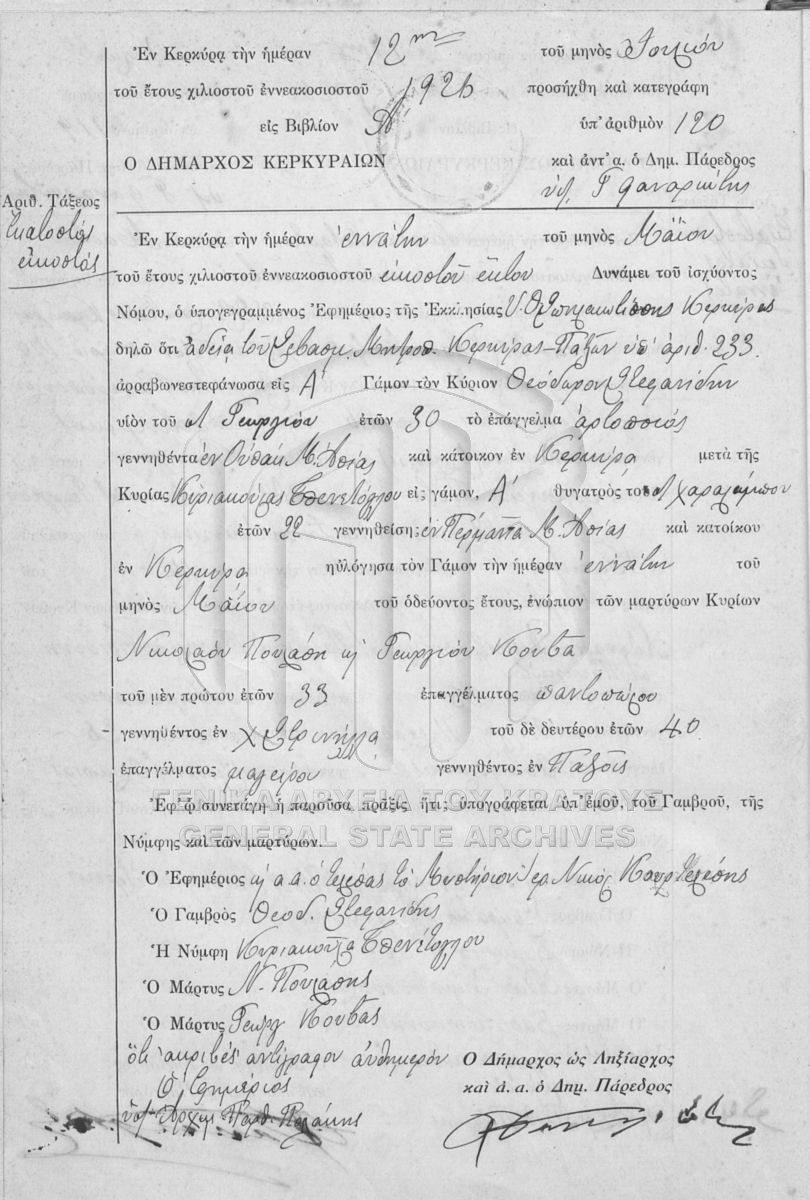 Ἐν Κερκύρᾳ τὴν ἡμέραν 12ην τοῦ μηνὸς
τοῦ ἔτους χιλιοστοῦ ἐννεακοσιοστοῦ 1926 προσήχθη καὶ κατεγράφη
εἰς Βιβλίον Α΄ ὑπ' ἀριθμὸν 120
Ο ΔΗΜΑΡΧΟΣ ΚΕΡΚΥΡΑΙΩΝ καὶ ἀντ' α. ὁ Δημ. Πάρεδρος
Ἀριθ. Τάξεως
ἑκατοστός
εἰκοστός
Ἐν Κερκύρᾳ τὴν ἡμέραν ἐννάτην τοῦ μηνὸς Μαΐου
τοῦ ἔτους χιλιοστοῦ ἐννεακοσιοστοῦ εἰκοστοῦ ἕκτου Δυνάμει τοῦ ἰσχύοντος
Νόμου, ὁ ὑπογεγραμμένος Ἐφημέριος τῆς Ἐκκλησίας Κερκύρας
δηλῶ ὅτι ἀδείᾳ τοῦ Σεβασμ. Μητροπ. Κερκύρας-Παξῶν ὑπ' ἀριθ. 233
ἀρραβωνεστεφάνωσα εἰς Α΄ Γάμον τὸν Κύριον Θεόδωρον Στεφανίδην
υἱὸν τοῦ Γεωργίου ἐτῶν 30 τὸ ἐπάγγελμα ἀρτοποιός
γεννηθέντα ἐν Οὐσὰκ Μ. Ἀσίας καὶ κάτοικον ἐν Κερκύρᾳ μετὰ τῆς
Κυρίας Κυριακούλας εἰς γάμον, Α΄ θυγατρὸς τοῦ Χαραλάμπου
ἐτῶν 22 γεννηθείσης ἐν Μ. Ἀσίας καὶ κατοίκου
ἐν Κερκύρᾳ ηὐλόγησα τὸν Γάμον τὴν ἡμέραν ἐννάτην τοῦ
μηνὸς Μαΐου τοῦ ὁδεύοντος ἔτους, ἐνώπιον τῶν μαρτύρων Κυρίων
Νικολάου Πουλάση κ Γεωργίου Κούβα
τοῦ μὲν πρώτου ἐτῶν 33 ἐπαγγέλματος παντοπώλου
γεννηθέντος ἐν χ Στρινήλλα τοῦ δὲ δευτέρου ἐτῶν 40
ἐπαγγέλματος μαγείρου γεννηθέντος ἐν Παξοῖς
Ἐφ' ᾧ συνετάγη ἡ παροῦσα πρᾶξις ἥτις ὑπογράφεται ὑπ' ἐμοῦ, τοῦ Γαμβροῦ, τῆς
ΓΕΝΙΚΑ ΑΡΧΕΙΑ ΤΟΥ ΚΡΑΤΟΥΣ
GENERAL STATE ARCHIVES
Νύμφης καὶ τῶν μαρτύρων.
Ὁ Ἐφημέριος κ α.α. ὁ τελέσας τὸ Μυστήριον Ἱερ. Νικόλ.
Ὁ Γαμβρὸς Θεοδ. Στεφανίδης
Ἡ Νύμφη Κυριακούλα
Ὁ Μάρτυς Ν. Πουλάσης
Ὁ Μάρτυς Γεωργ Κούβας
ὅτι ἀκριβὲς ἀντίγραφον αὐθημερόν Ὁ Δήμαρχος ὡς Ληξίαρχος
Ὁ Ἐφημέριος καὶ ἀ. α. ὁ Δημ. Πάρεδρος